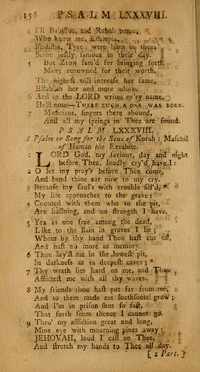 156 PSALM LXXXVIII.
4 I'll Babylon, and Rahab
Who know me, Ethiopia,
Philistia, Tyre, were born in
Some justly famous in their day.
5 But Zion fam'd for bringing forth
Many renowned for their worth,
The highest will increase her fame,
Establish her and more
6 And as the LORD writes my name,
He'll note—THERE SUCH A ONE WAS BORN.
7 Musicians, singers there abound,
And all my springs in Thee are found
PSALM LXXXVIII.
A Psalm or Song for the Sons of Korah; Maschil
of Heman the Ezrahite.
LORD God, my saviour, day and night
before Thee, loudly cry'd have I:
2 O let my pray'r before Thee come,
And bend thine ear now to my cry.
3 Because my soul's with trouble fill'd,
My life approaches to the grave:
4 Counted with them who to the pit,
Are hasting, and no strength I have.
5 Yea as one free among the dead,
Like to the slain in graves I lie;
Whom by thy hand Thou hast cut off,
And hast no more in memory.
6 Thou lay'st me in the lowest pit,
In darkness as in deepest caves;
7 Thy wrath lies hard on me, and Thou
Afflicted me with all thy waves.
8 My friends thou hast put far from me,
And to them made me loathsome grow;
And I'm in prison shut so fast,
That forth from thence I cannot go.
9 Thro' my affliction great and long,
Mine eye with mourning pines away;
JEHOVAH, loud I call on Thee,
And stretch my hands to Thee all day.
[2 Part.]